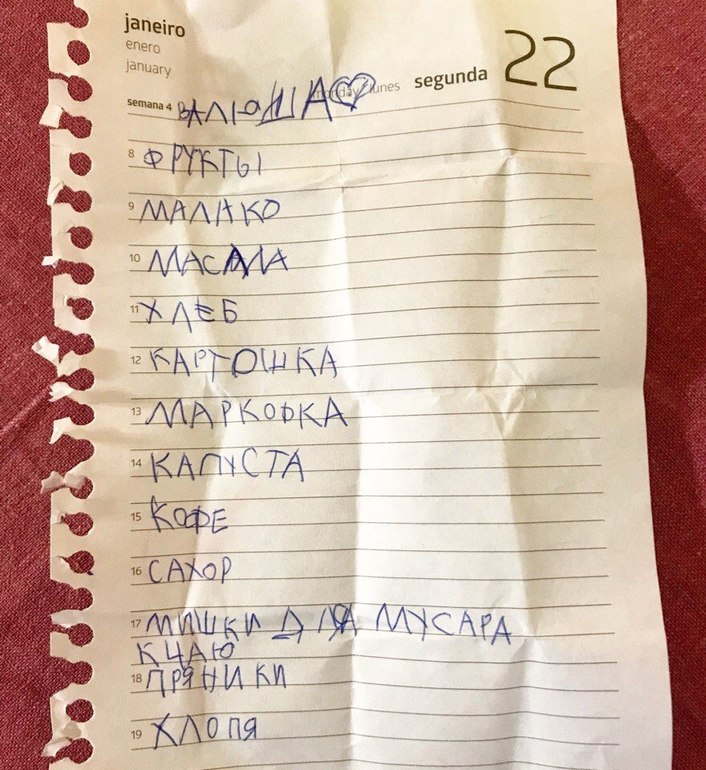 janeiro
enero
january
segunda 22
lunes
semana 4 ВАЛЮША
8 ФРУКТЫ
9 МАЛАКО
10 МАСАЛА
11 ХЛЕБ
12 КАРТОШКА
13 МАРКОФКА
14 КАПУСТА
15 КОФЕ
16 САХОР
17 МИШКИ ДЛЯ МУСАРА
К ЧАЮ
18 ПРЯНИКИ
19 ХЛОПЯ